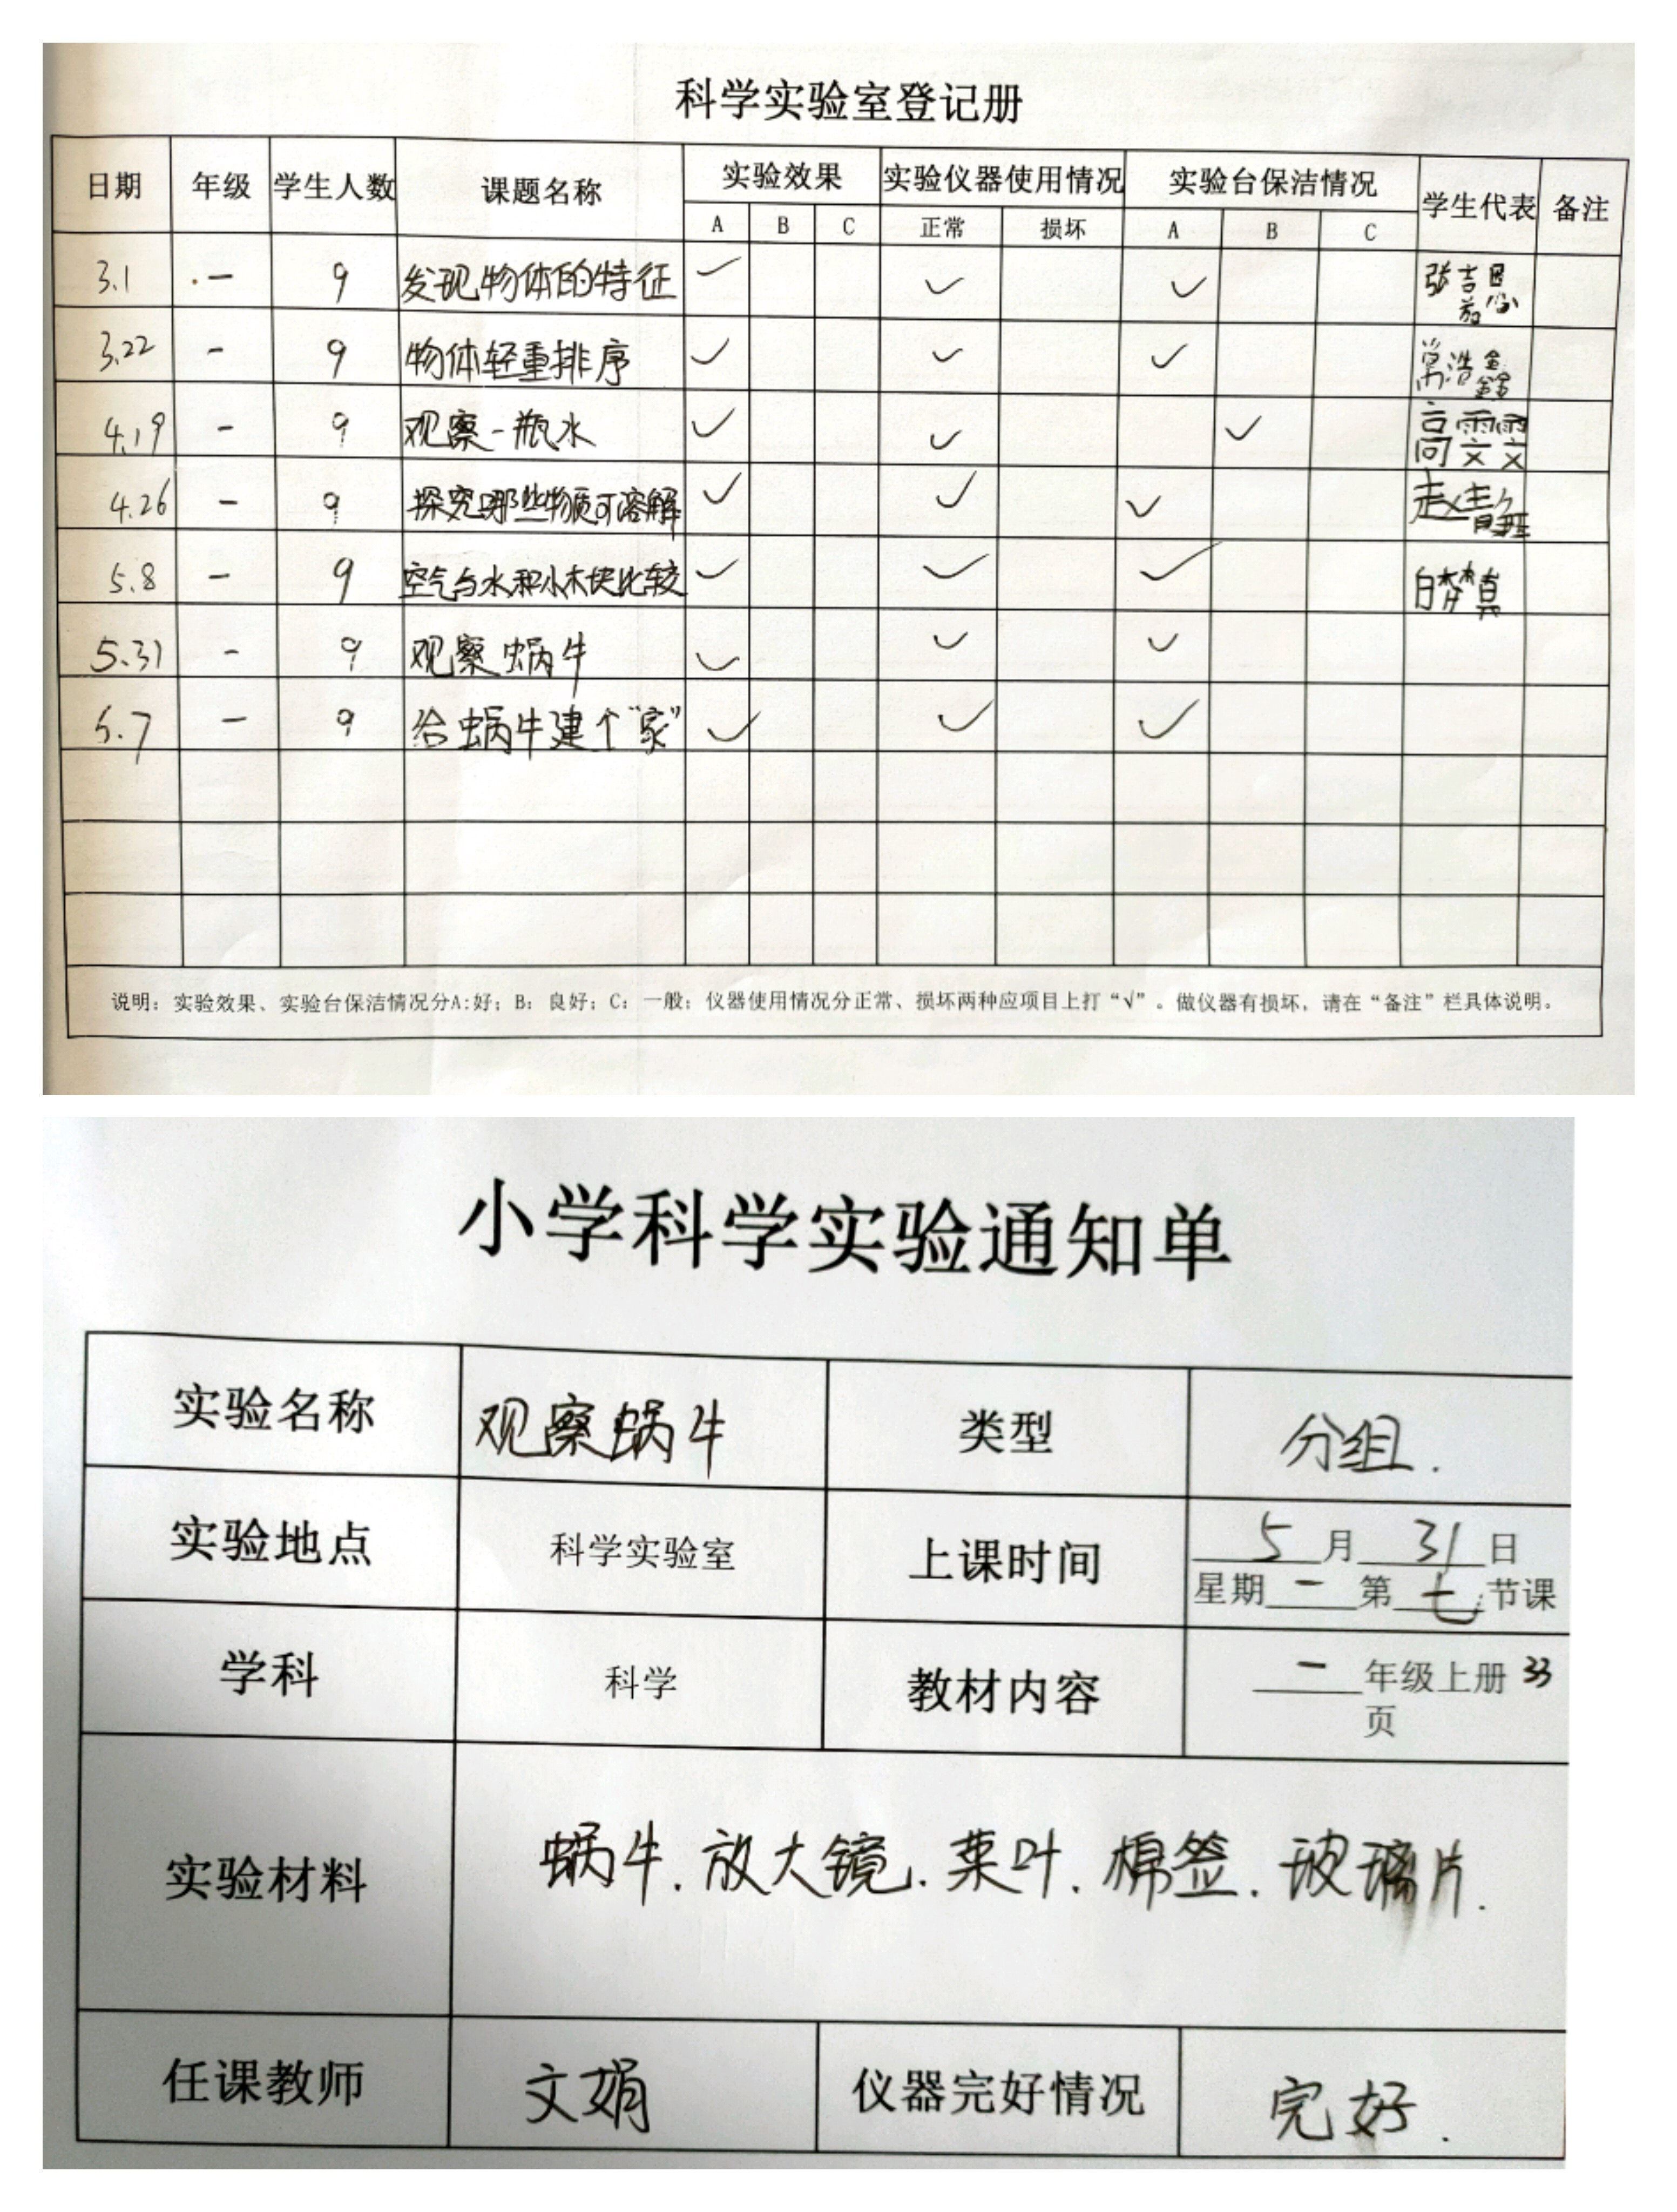 科学实验室登记册
日期 年级 学生人数 课题名称 实验效果 实验仪器使用情况 实验台保洁情况 学生代表 备注
A B C 正常 损坏 A B C
3.1 一 9 发现物体的特征 ✓ ✓ ✓ 张吉恩
3.22 一 9 物体轻重排序 ✓ ✓ ✓ 常浩鑫
4.19 一 9 观察一瓶水 ✓ ✓ ✓ 高雯雯
4.26 一 9 探究哪些物质可溶解 ✓ ✓ ✓ 赵静
5.8 一 9 空气与水和小木块比较 ✓ ✓ ✓ 白梦真
5.31 一 9 观察蜗牛 ✓ ✓ ✓
6.7 一 9 给蜗牛建个“家” ✓ ✓ ✓
说明：实验效果、实验台保洁情况分A:好；B：良好；C：一般；仪器使用情况分正常、损坏两种应项目上打“√”。做仪器有损坏，请在“备注”栏具体说明。
小学科学实验通知单
实验名称 观察蜗牛 类型 分组.
实验地点 科学实验室 上课时间 5月31日
星期一第七节课
学科 科学 教材内容 一年级上册33
页
实验材料 蜗牛.放大镜.菜叶.棉签.玻璃片.
任课教师 文娟 仪器完好情况 完好.